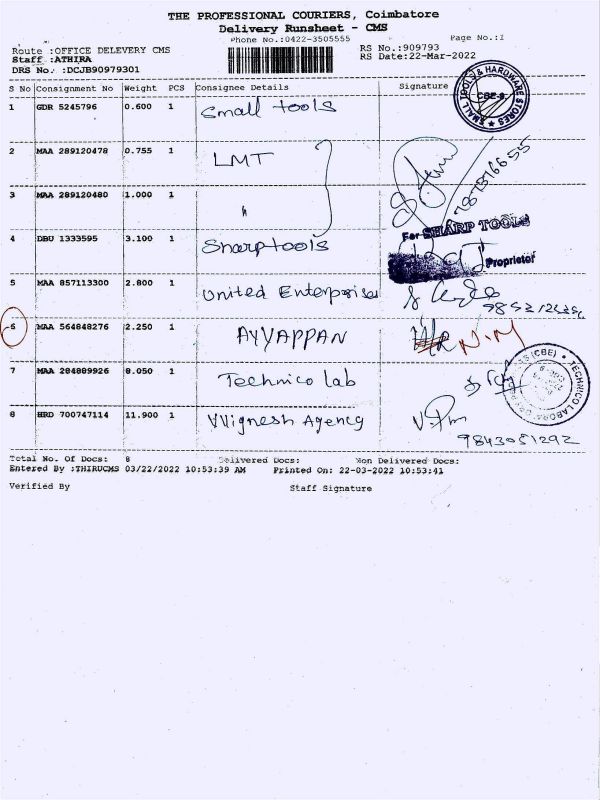 THE PROFESSIONAL COURIERS, Coimbatore
Delivery Runsheet - CMS
Phone No.:0422-3505555 Page No.:1
Route :OFFICE DELEVERY CMS RS No.:909793
Staff :ATHIRA RS Date:22-Mar-2022
DRS No. :DCJB90979301
S No Consignment No Weight PCS Consignee Details Signature
SMALL TOOLS & HARDWARE STORES
CBE-9
1 GDR 5245796 0.600 1 Small tools
2 MAA 289120478 0.755 1 LMT
3 MAA 289120480 1.000 1 "
For SHARP TOOLS
4 DBU 1333595 3.100 1 Sharptools
Proprietor
5 MAA 857113300 2.800 1 United Enterprises
6 MAA 564848276 2.250 1 AYYAPPAN N.M
7 MAA 284889926 8.050 1 Technico lab
8 HRD 700747114 11.900 1 VVignesh Agency
9843051292
Total No. Of Docs: 8 Delivered Docs: Non Delivered Docs:
Entered By :THIRUCMS 03/22/2022 10:53:39 AM Printed On: 22-03-2022 10:53:41
Verified By Staff Signature